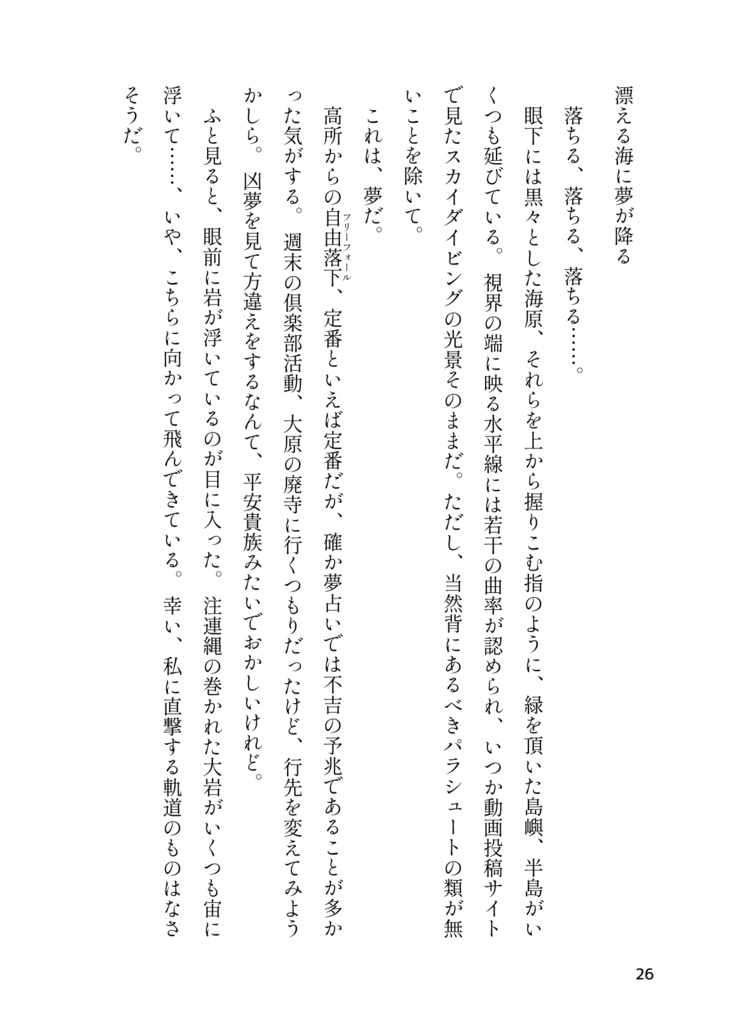 漂える海に夢が降る
落ちる、落ちる、落ちる……。
眼下には黒々とした海原、それらを上から握りこむ指のように、緑を頂いた島嶼、半島がい
くつも延びている。視界の端に映る水平線には若干の曲率が認められ、いつか動画投稿サイト
で見たスカイダイビングの光景そのままだ。ただし、当然背にあるべきパラシュートの類が無
いことを除いて。
これは、夢だ。
高所からの自由落下、定番といえば定番だが、確か夢占いでは不吉の予兆であることが多か
フリーフォール
った気がする。週末の倶楽部活動、大原の廃寺に行くつもりだったけど、行先を変えてみよう
かしら。凶夢を見て方違えをするなんて、平安貴族みたいでおかしいけれど。
ふと見ると、眼前に岩が浮いているのが目に入った。注連縄の巻かれた大岩がいくつも宙に
浮いて……、いや、こちらに向かって飛んできている。幸い、私に直撃する軌道のものはなさ
そうだ。
26